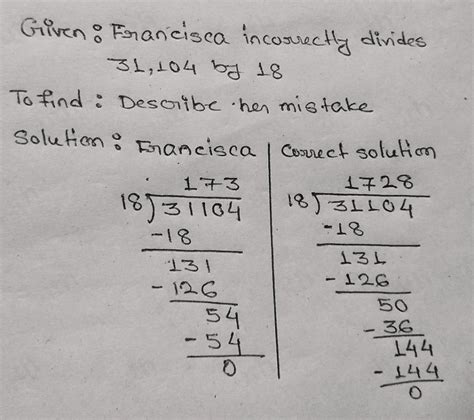 Given : Francisca incorrectly divides
31,104 by 18
To find : Describe her mistake
Solution : Francisca
173
18)31104
-18
131
-126
54
-54
0
Correct solution
1728
18)31104
-18
131
-126
50
-36
144
-144
0